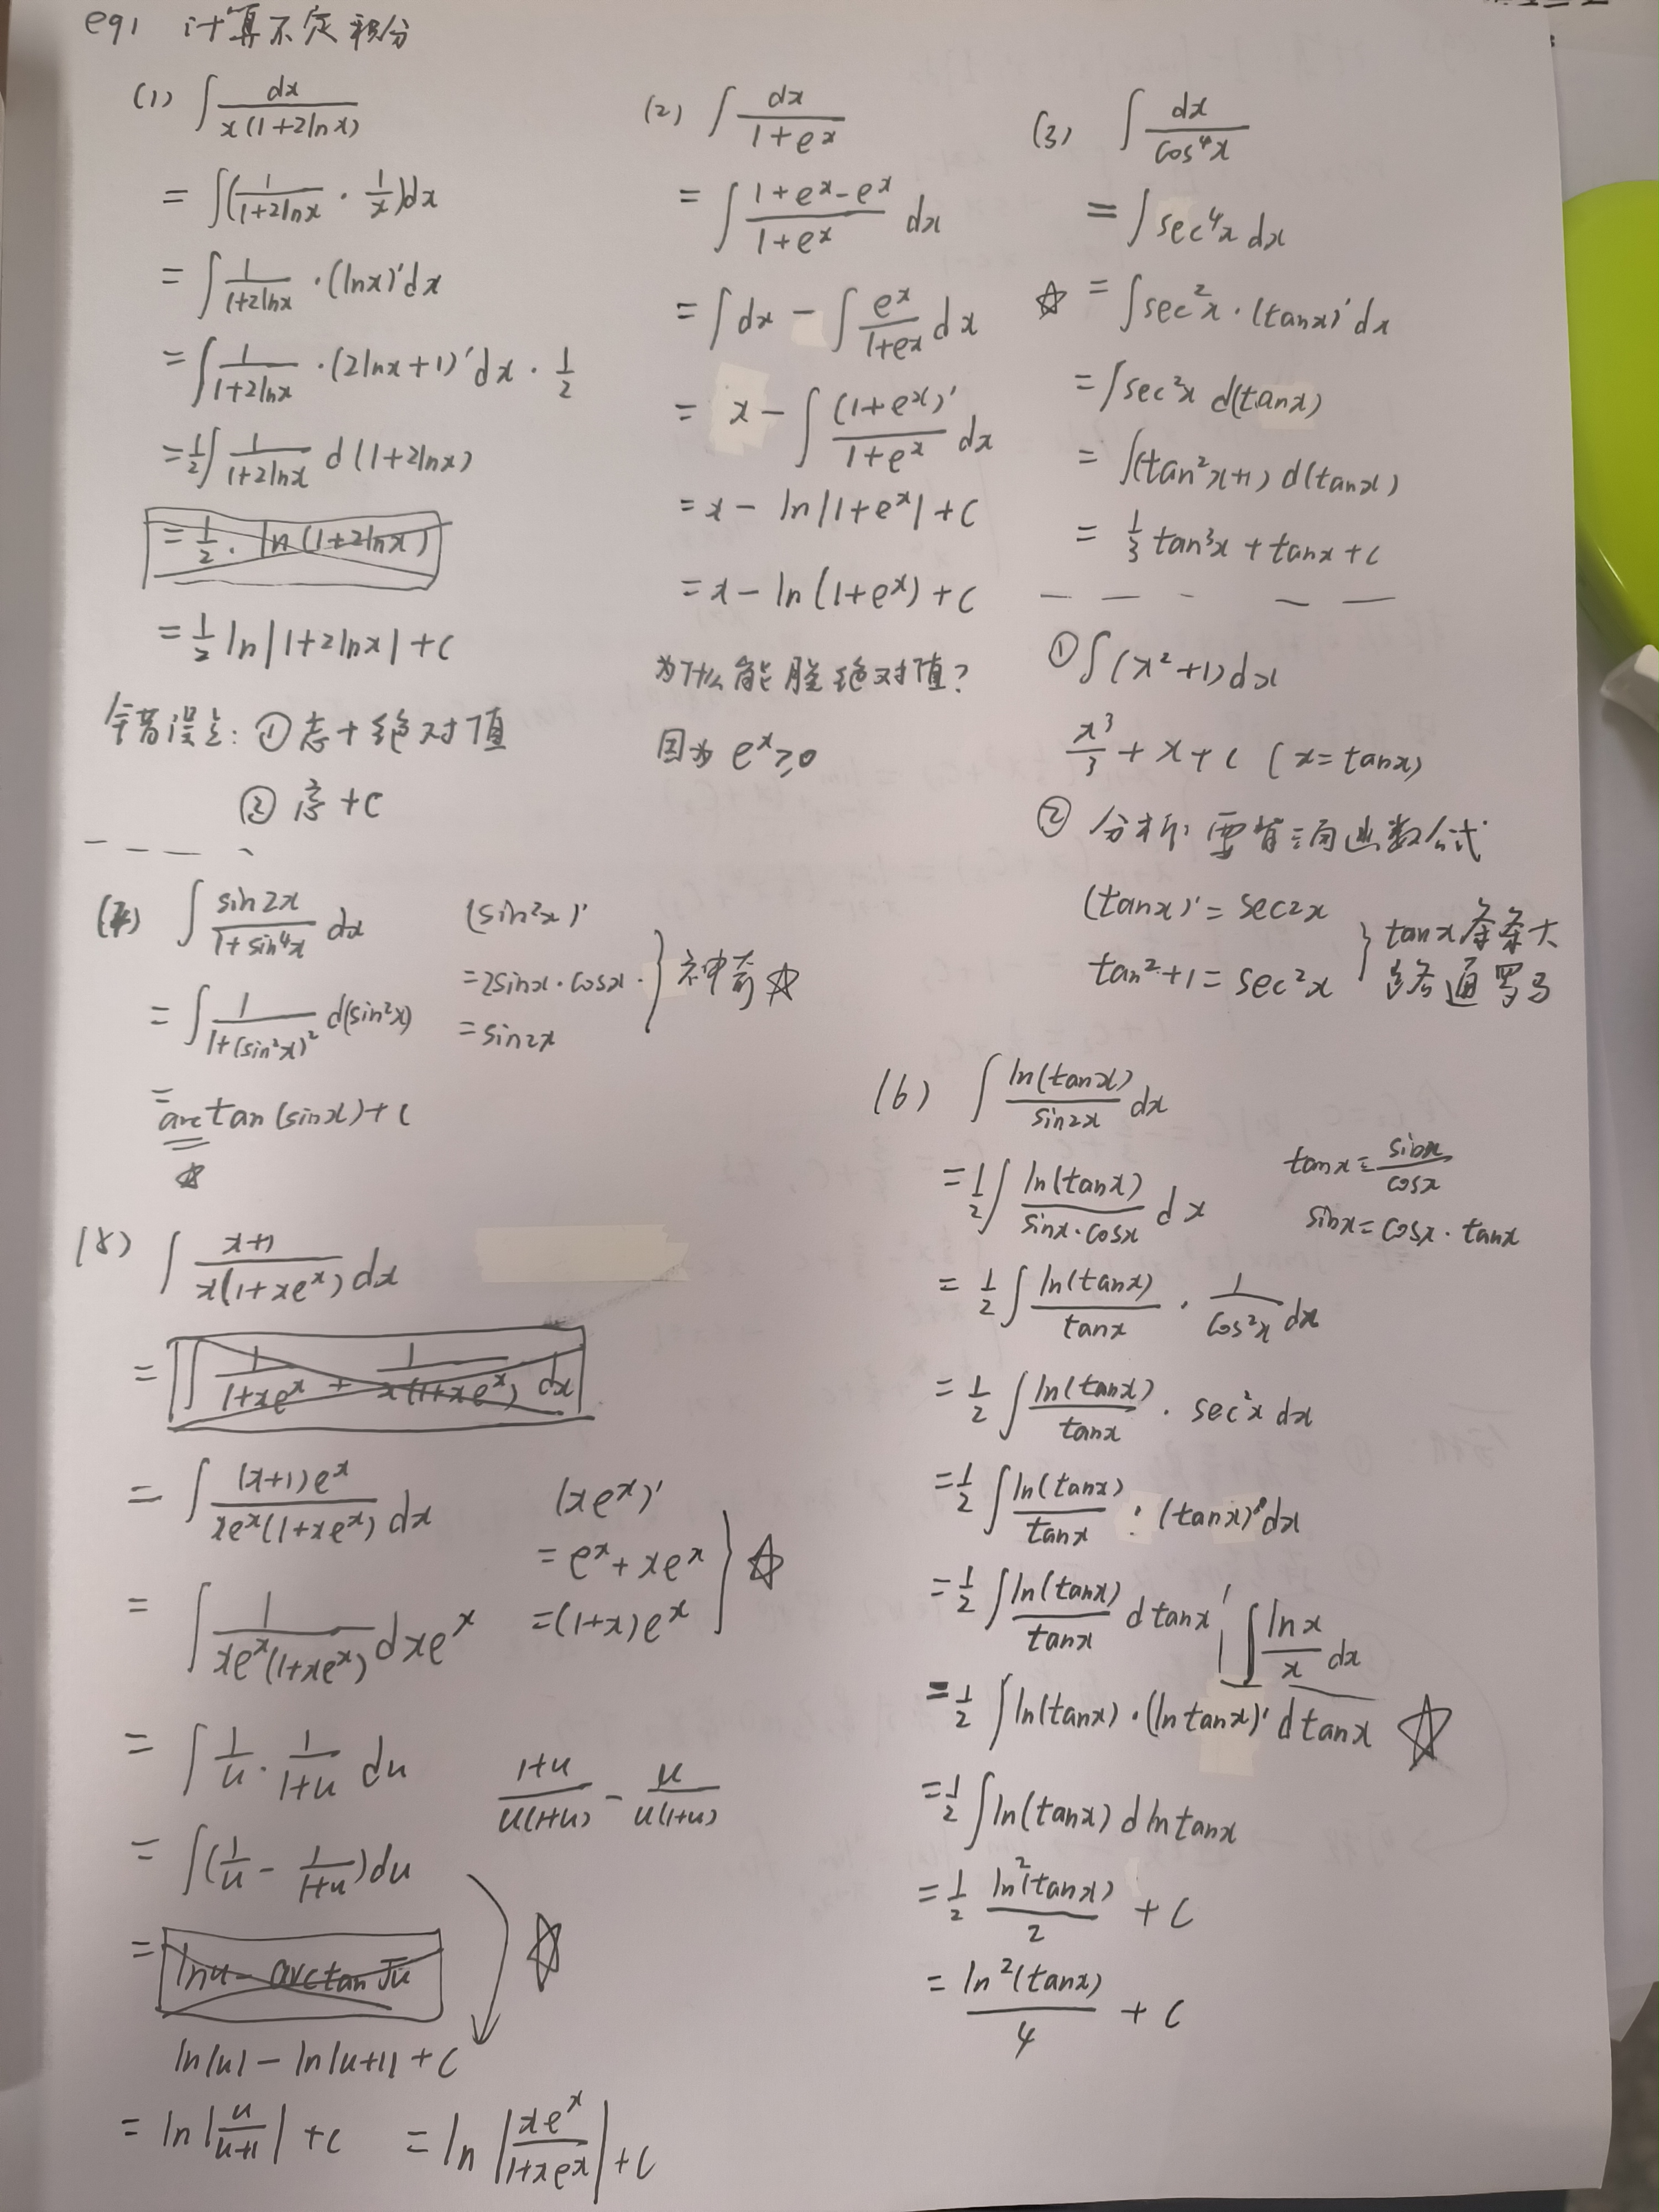 eg1 计算不定积分
(1) ∫ dx / x(1+2lnx)
= ∫(1/(1+2lnx) · 1/x)dx
= ∫ 1/(1+2lnx) · (lnx)'dx
= ∫ 1/(1+2lnx) · (2lnx+1)'dx · 1/2
= 1/2 ∫ 1/(1+2lnx) d(1+2lnx)
= 1/2 · ln(1+2lnx)
= 1/2 ln|1+2lnx| + C
错误点: ① 忘+绝对值
② +C
(2) ∫ dx / (1+e^x)
= ∫ (1+e^x-e^x)/(1+e^x) dx
= ∫dx - ∫ e^x/(1+e^x) dx
= x - ∫ (1+e^x)'/(1+e^x) dx
= x - ln|1+e^x| + C
= x - ln(1+e^x) + C
为什么能脱绝对值?
因为 e^x ≥ 0
(3) ∫ dx / cos⁴x
= ∫ sec⁴x dx
☆ = ∫ sec²x · (tanx)'dx
= ∫ sec²x d(tanx)
= ∫(tan²x+1) d(tanx)
= 1/3 tan³x + tanx + C
① ∫(x²+1)dx
x³/3 + x + C (x=tanx)
② 分析: 要背三角函数公式
(tanx)' = sec2x
tan²+1 = sec²x
tanx
(7) ∫ sin2x/(1+sin⁴x) dx
= ∫ 1/(1+(sin²x)²) d(sin²x)
= arctan(sinx)+C
☆
(sin²x)'
= 2sinx·cosx·
= sin2x
神奇☆
(6) ∫ ln(tanx)/sin2x dx
= 1/2 ∫ ln(tanx)/(sinx·cosx) dx
= 1/2 ∫ ln(tanx)/tanx · 1/cos²x dx
= 1/2 ∫ ln(tanx)/tanx · sec²x dx
= 1/2 ∫ ln(tanx)/tanx · (tanx)'dx
= 1/2 ∫ ln(tanx)/tanx dtanx
∫ lnx/x dx
= 1/2 ∫ ln(tanx)·(lntanx)' dtanx ☆
= 1/2 ∫ ln(tanx) dlntanx
= 1/2 ln²(tanx)/2 + C
= ln²(tanx)/4 + C
tanx = sinx/cosx
sinx = cosx · tanx
(8) ∫ (x+1)/(x(1+xe^x)) dx
= ∫ 1/(1+xe^x) + 1/(x(1+xe^x)) dx
= ∫ (x+1)e^x/(xe^x(1+xe^x)) dx
= ∫ 1/(xe^x(1+xe^x)) dxe^x
= ∫ 1/u · 1/(1+u) du
= ∫(1/u - 1/(1+u))du
= lnu - arctan√u
ln|u| - ln|u+1| + C
= ln|u/(u+1)| + C = ln|xe^x/(1+xe^x)| + C
(xe^x)'
= e^x + xe^x
= (1+x)e^x
☆
(1+u)/(u(1+u)) - u/(u(1+u))
☆